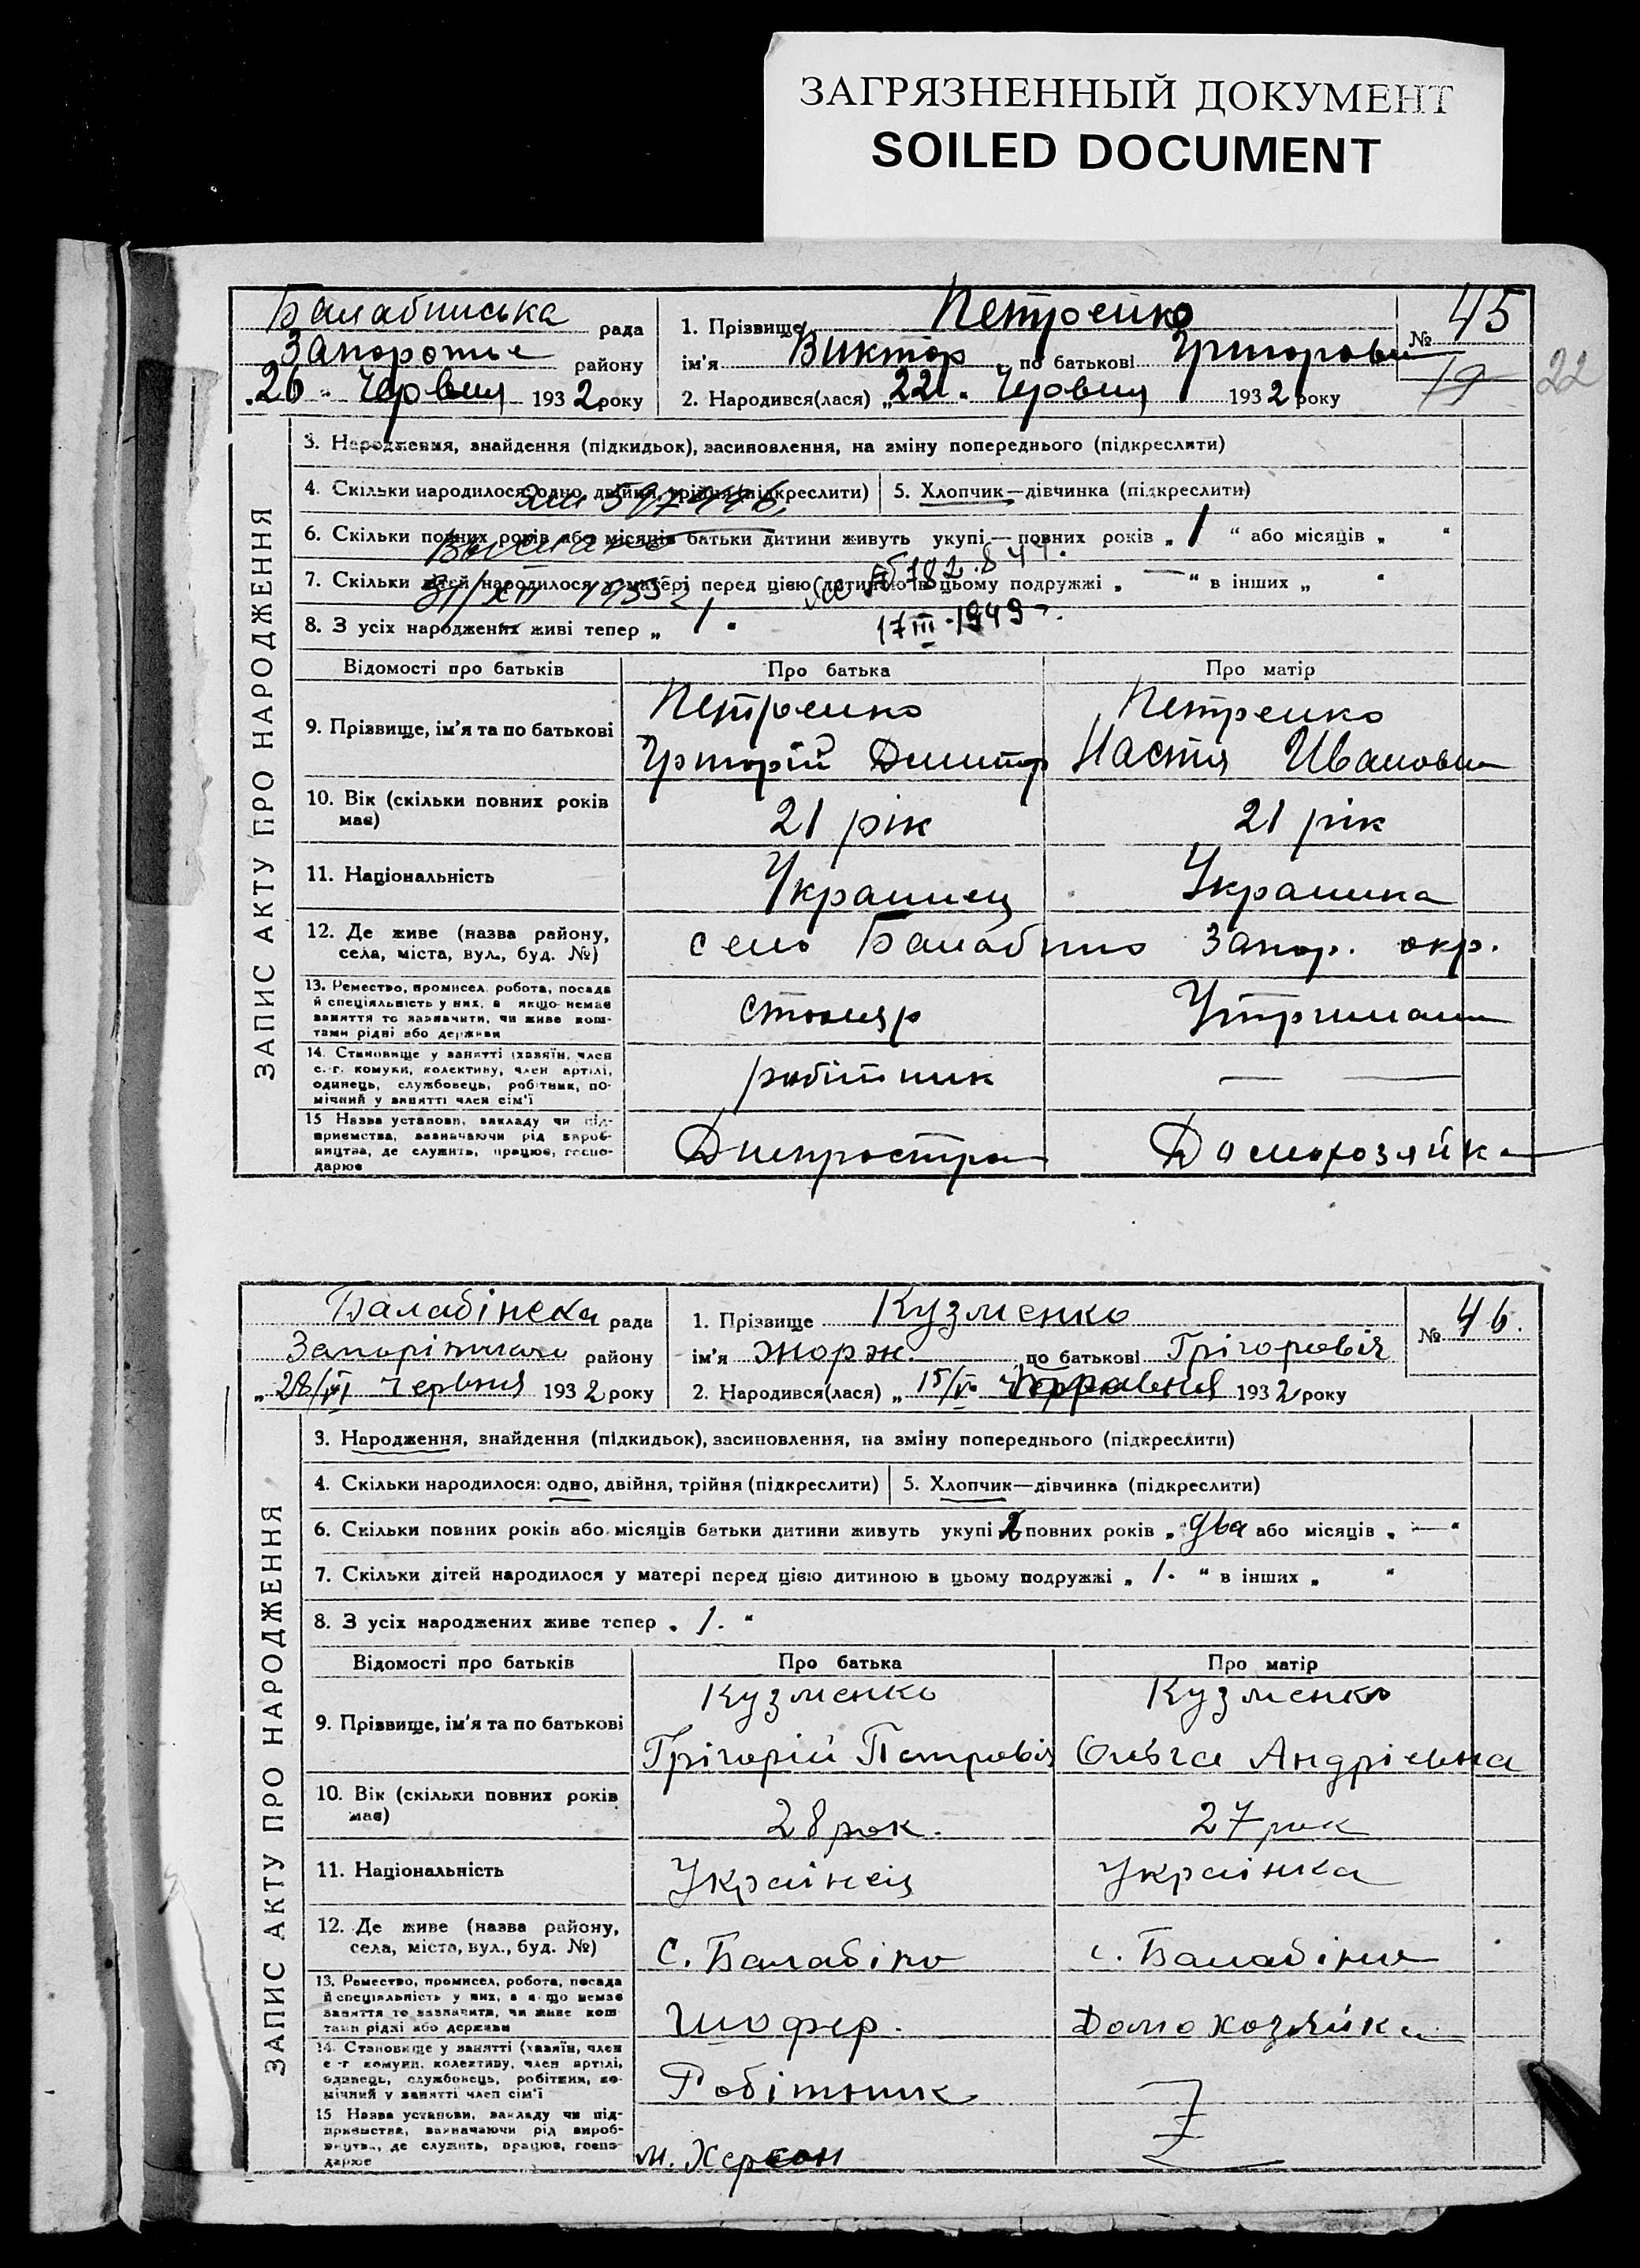 ЗАГРЯЗНЕННЫЙ ДОКУМЕНТ
SOILED DOCUMENT
22
Балабинська рада
Запорожье району
„26“ Червня 1932 року
1. Прізвище Петренко
ім'я Виктор по батькові Григорови
2. Народився(лася) „22“ Червня 1932 року
№ 45
19
ЗАПИС АКТУ ПРО НАРОДЖЕННЯ
3. Народження, знайдення (підкидьок), засиновлення, на зміну попереднього (підкреслити)
4. Скільки народилося: одно, двійня, трійня (підкреслити) 5. Хлопчик—дівчинка (підкреслити)
6. Скільки повних років або місяців батьки дитини живуть укупі — повних років „ 1 “ або місяців „ “
7. Скільки дітей народилося у матері перед цією дитиною в цьому подружжі „ — “ в інших „ “
31/XII 1935
8. З усіх народжених живі тепер „ 1 “
17 III 1949 г.
Відомості про батьків Про батька Про матір
9. Прізвище, ім'я та по батькові
Петренко Петренко
Григорій Дмитр Настя Ивановн
10. Вік (скільки повних років має)
21 рік 21 рік
11. Національність
Украинец Украинка
12. Де живе (назва району, села, міста, вул., буд. №)
село Балабино Запор. окр.
13. Ремество, промисел, робота, посада й спеціяльність у них, а якщо немає заняття то зазначити, чи живе коштами рідні або держави
столяр Утриман
14. Становище у занятті (хазяїн, член с.-г. комуни, колективу, член артілі, одинець, службовець, робітник, помічний у занятті член сім'ї
робітник — —
15 Назва установи, закладу чи підприємства, зазначаючи рід виробництва, де служить, працює, господарює
Днепростро Домохозяйка
Балабінска рада
Запоріжчого району
„28/VI Червня 1932 року
1. Прізвище Кузменко
ім'я Жорж по батькові Грігоровіч
2. Народився(лася) „15/V 1932 року
№ 46.
ЗАПИС АКТУ ПРО НАРОДЖЕННЯ
3. Народження, знайдення (підкидьок), засиновлення, на зміну попереднього (підкреслити)
4. Скільки народилося: одно, двійня, трійня (підкреслити) 5. Хлопчик—дівчинка (підкреслити)
6. Скільки повних років або місяців батьки дитини живуть укупі 2 повних років „ два або місяців „ — “
7. Скільки дітей народилося у матері перед цією дитиною в цьому подружжі „ 1. “ в інших „ “
8. З усіх народжених живе тепер „ 1. “
Відомості про батьків Про батька Про матір
9. Прізвище, ім'я та по батькові
Кузменко Кузменко
Грігорій Петровіч Ольга Андріевна
10. Вік (скільки повних років має)
28 рок. 27 рок
11. Національність
Украінец Украінка
12. Де живе (назва району, села, міста, вул., буд. №)
С. Балабіно с. Балабіно
13. Ремество, промисел, робота, посада й спеціяльність у них, а якщо немає заняття то зазначити, чи живе коштами рідні або держави
Шофер. Домохозяйка
14. Становище у занятті (хазяїн, член с-г комуни, колективу, член артілі, одинець, службовець, робітник, помічний у занятті член сім'ї
Робітник
15 Назва установи, закладу чи підприємства, зазначаючи рід виробництва, де служить, працює, господарює
м. Херсон